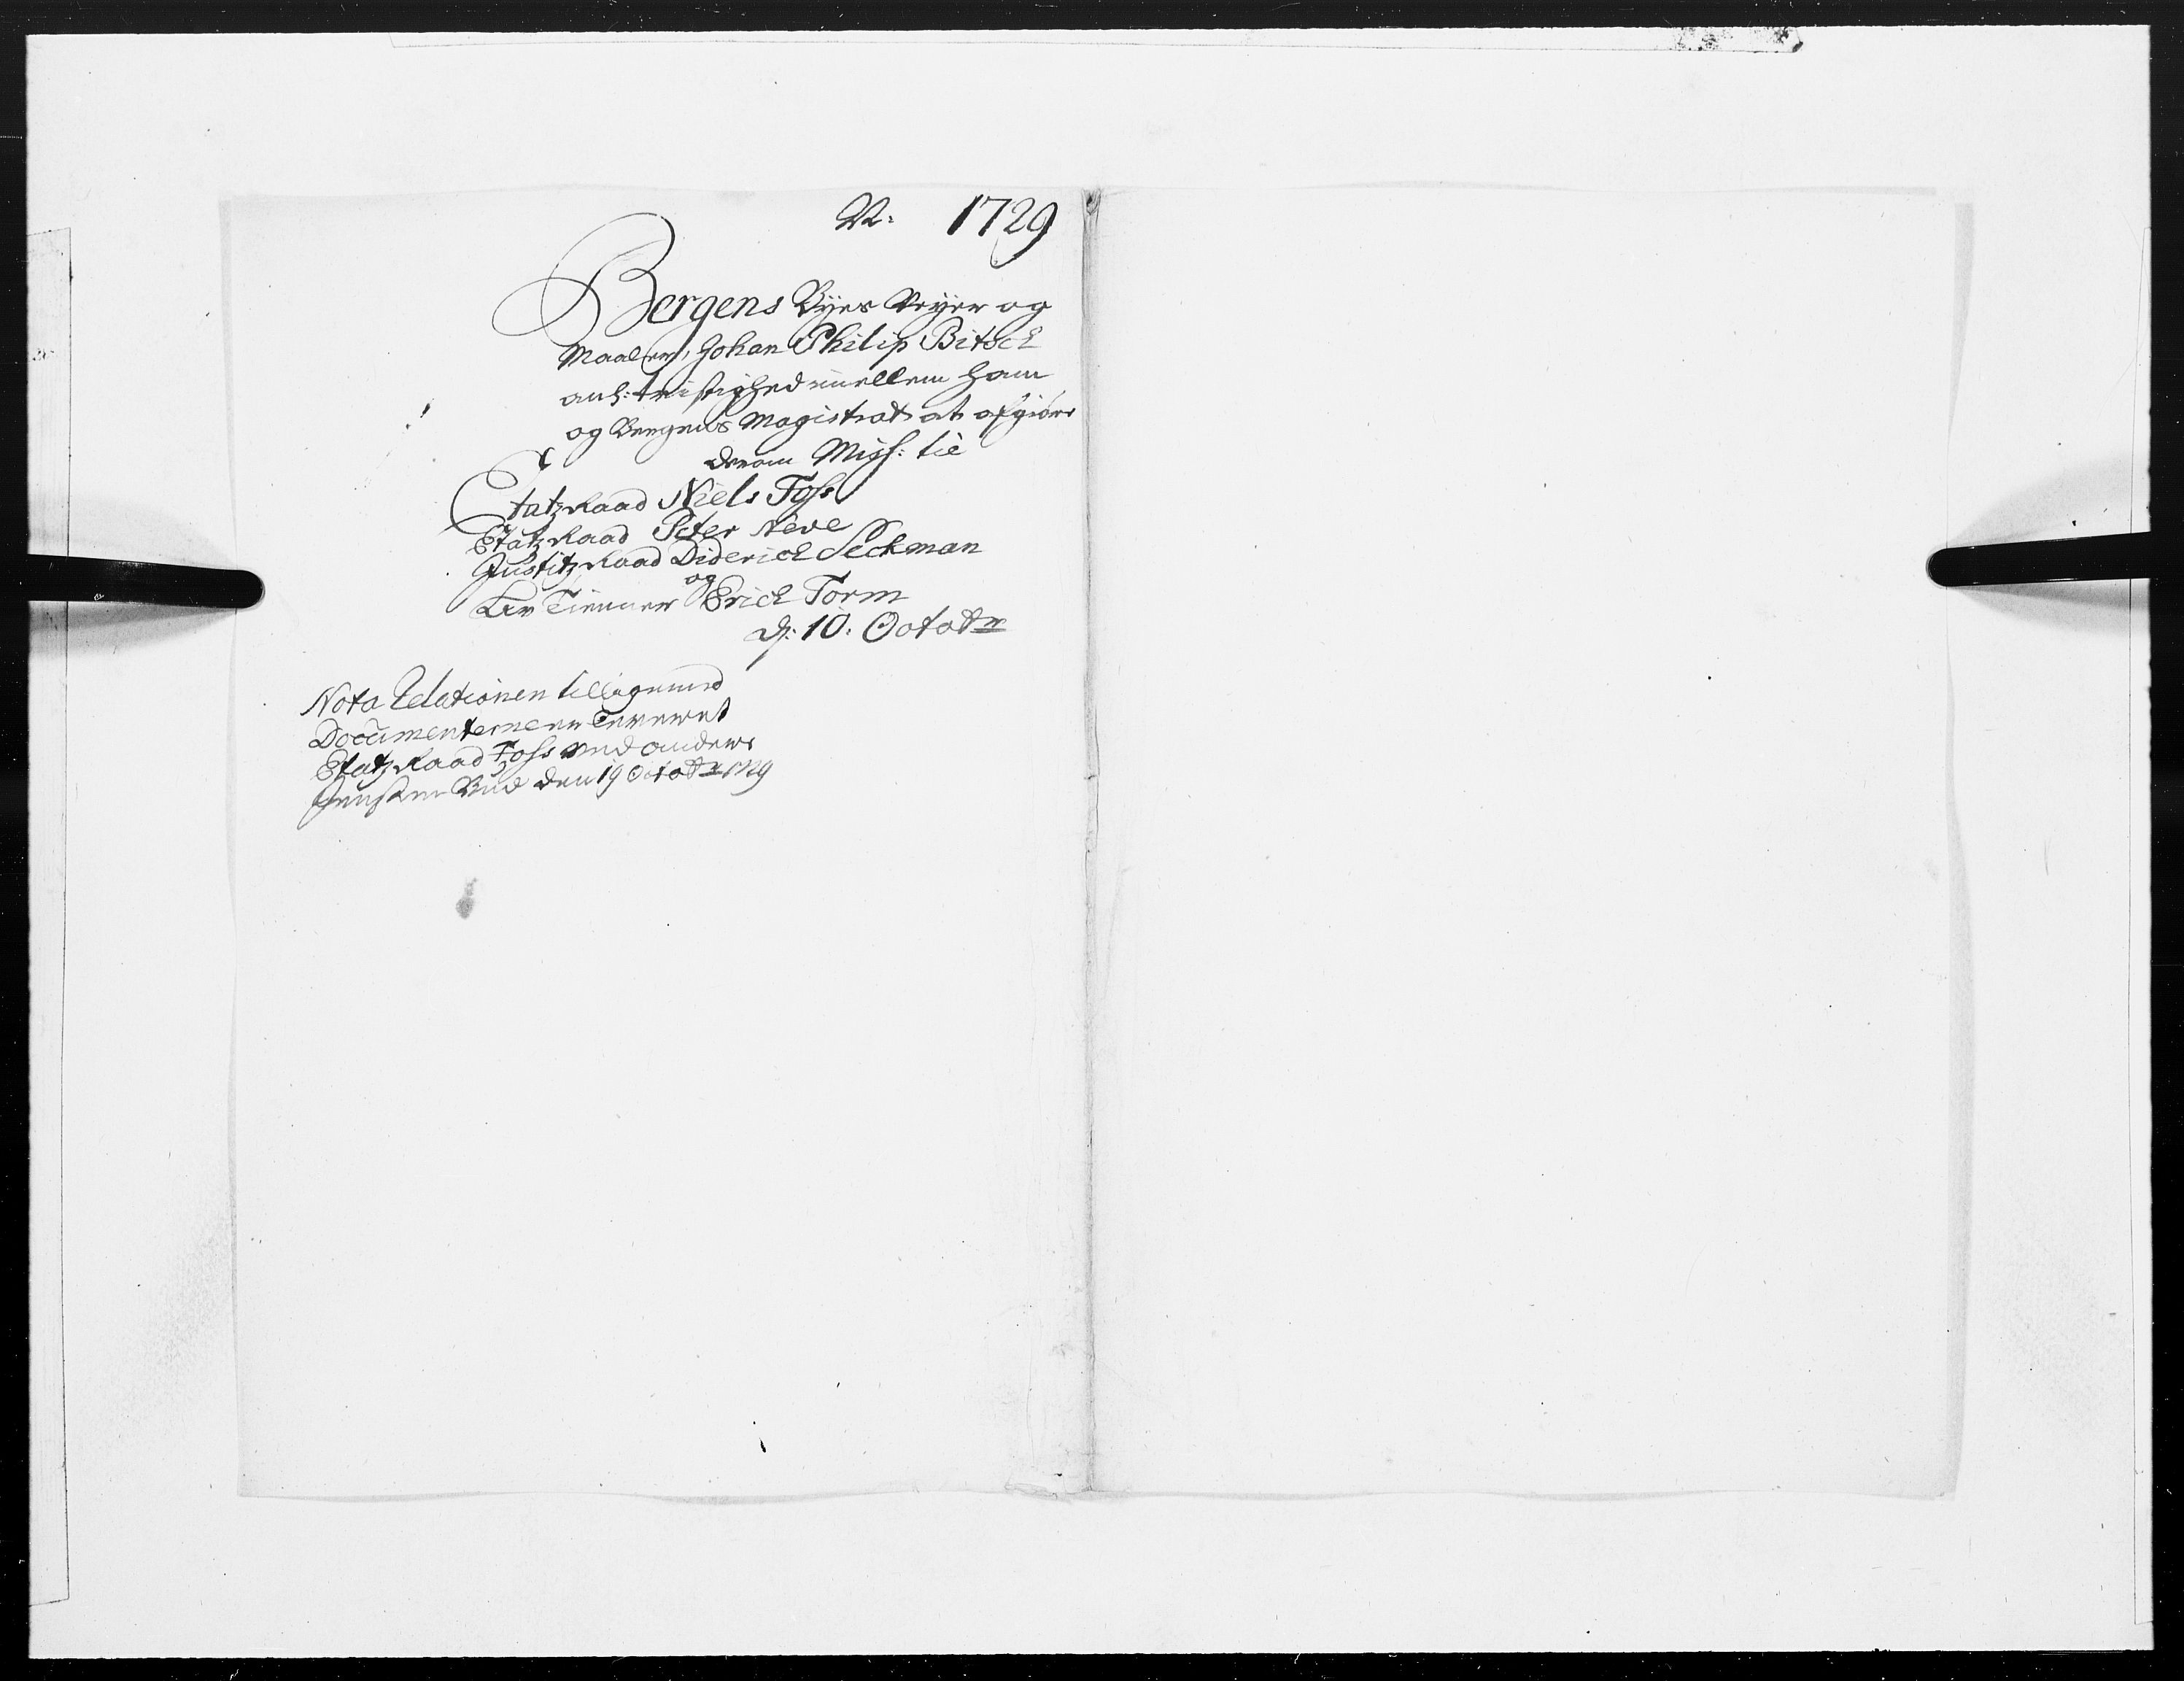 N: 1729
Bergens Byes Veyer og
Maaler, Johan Philip Bitsch
anl: tvistighed imellem ham
og Bergens Magistrat at afgiøre
derom Miss: til
Etatz Raad Niels Foss
Etatz Raad Peter Neve
Justitz Raad Diderich Seckman
og
Erich Torm
d: 10: Octobr
Nota Relationen tilligemed
Documenterne er leveret
Etatz Raad Foss med
Bud den 19 Octobr 1729